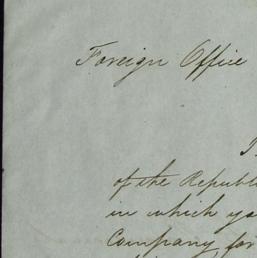 Foreign Office
of the Republi
in which yo
Company for